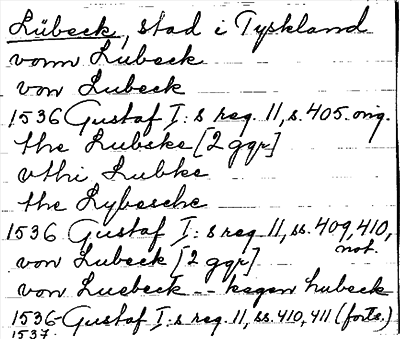 Lübeck, stad i Tyskland
vonn Lubeck
von Lubeck
1536 Gustaf I:s reg. 11, s. 405. orig.
the Lubske [2 ggr]
vthi Lubke
the Lybesche
1536 Gustaf I:s reg. 11, ss. 409, 410,
not.
von Lubeck [2 ggr]
von Luebeck -- kegen Lubeck
1536- Gustaf I:s reg. 11, ss. 410, 411 (forts.)
1537.